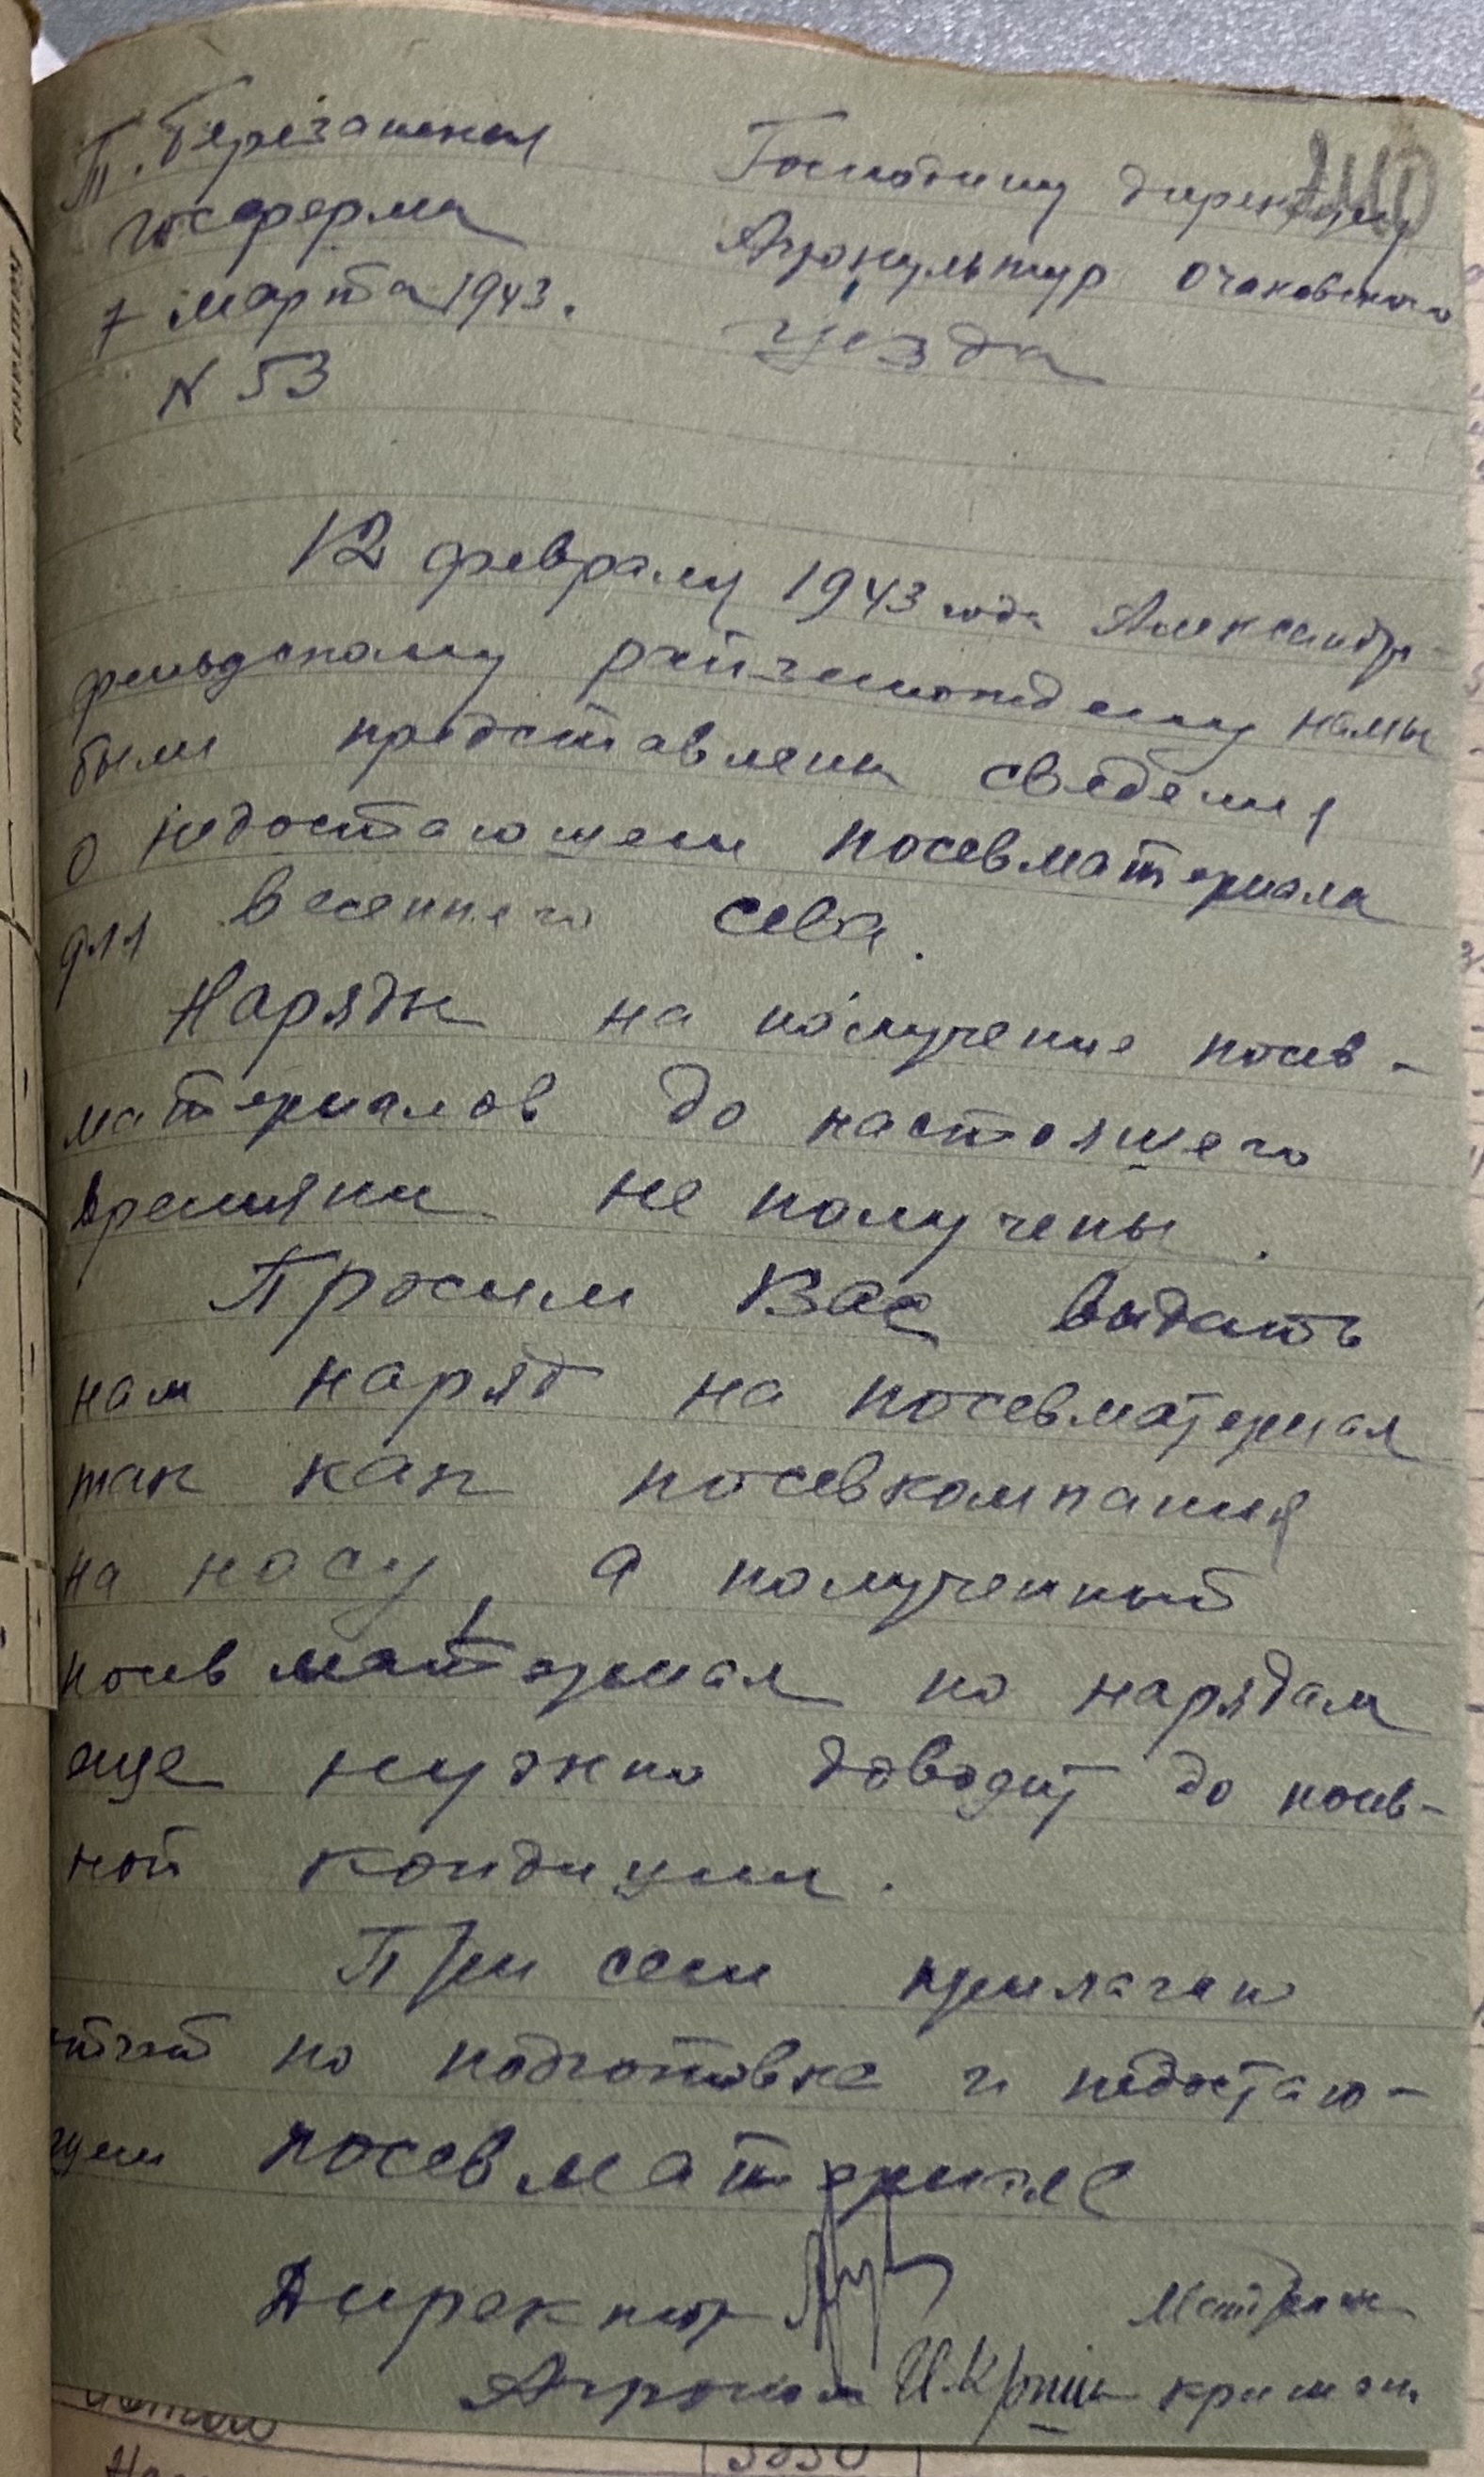 Т. Березанская
госферма
7 марта 1943.
N 53
240
Господину директору
Агрокультур очаковского
уезда
12 февралу 1943 года Александр-
фельдскому райземотделу намы
были представлены сведения
о недостающем посевматериала
для весеннего сева.
Наряды на получение посев-
материалов до настояшего
времяни не получены.
Просим Вас выдать
нам наряд на посевматериал
так как посевкомпания
на носу, а полученный
посевматериал по нарядам
еще нужно доводит до посев-
ной кондиции.
При сем прилагаю
отчет по подготовке и недостаю-
щем посевматериале
Директор
Агроном И. Криш